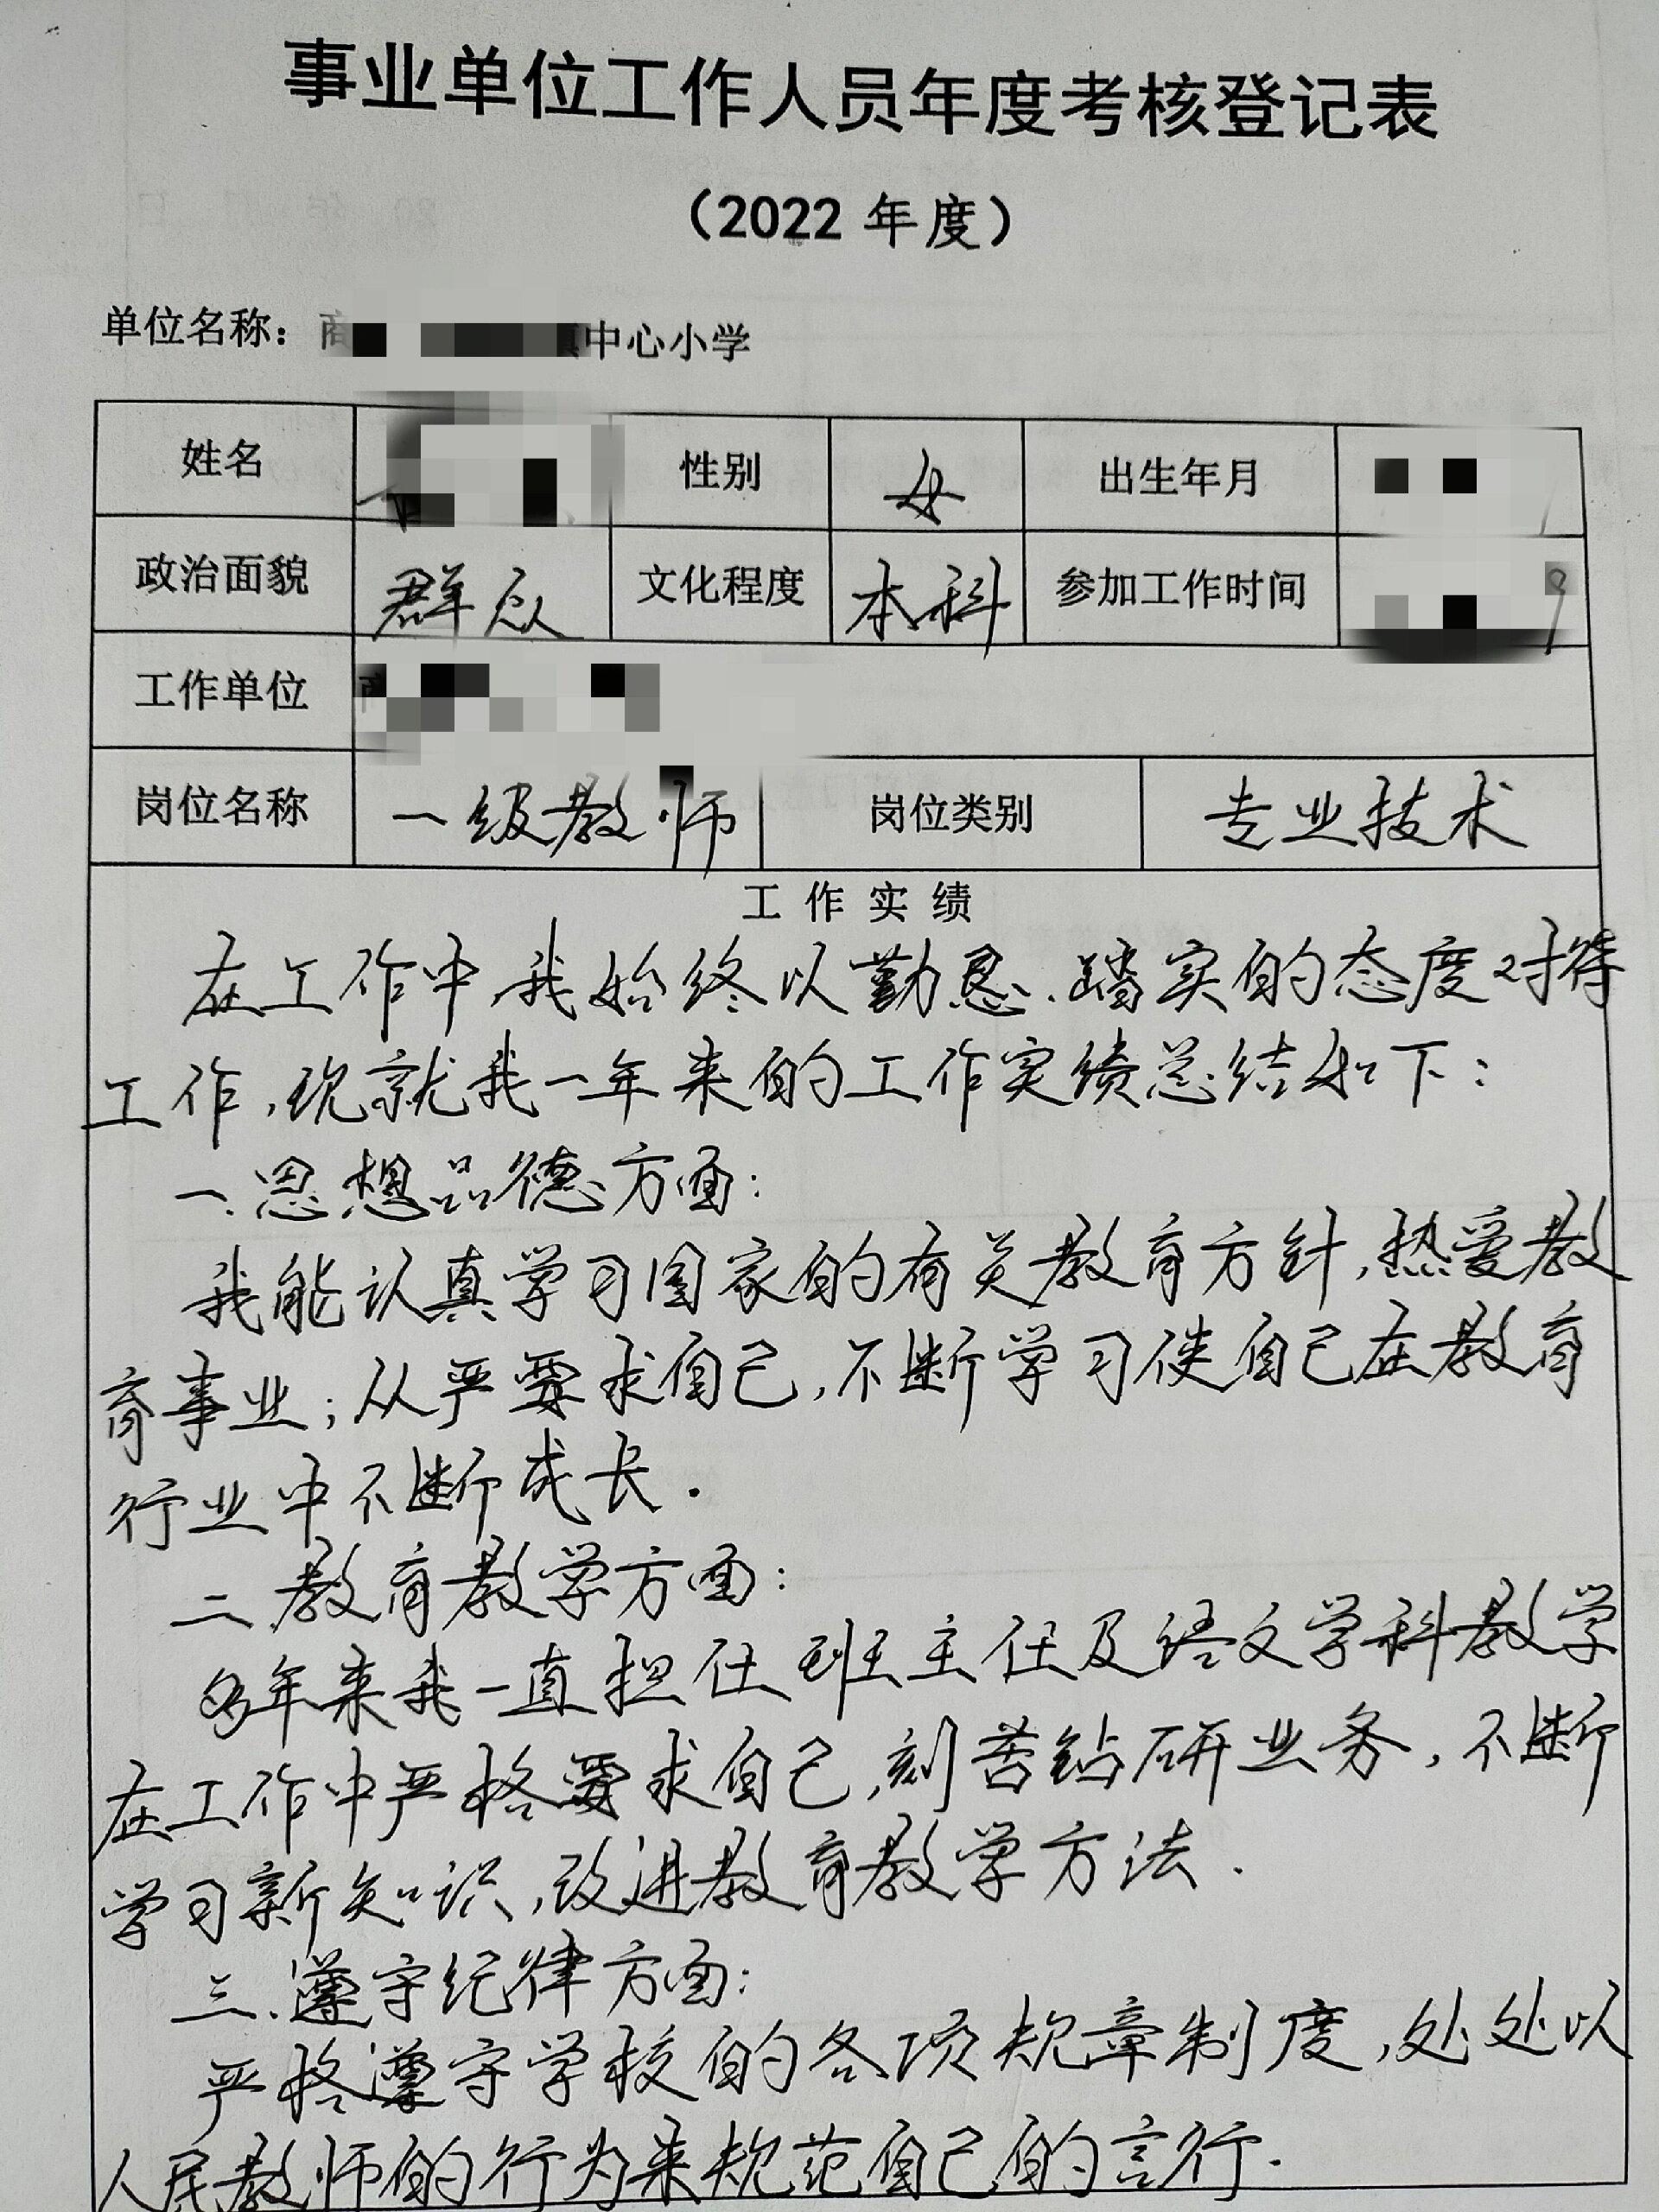 事业单位工作人员年度考核登记表
（2022 年度）
单位名称：中心小学
姓名 性别 女 出生年月
政治面貌 群众 文化程度 本科 参加工作时间
工作单位
岗位名称 一级教师 岗位类别 专业技术
工作实绩
在工作中,我始终以勤恳、踏实的态度对待
工作,现就我一年来的工作实绩总结如下：
一、思想品德方面：
我能认真学习国家的有关教育方针,热爱教
育事业；从严要求自己,不断学习使自己在教育
行业中不断成长.
二、教育教学方面：
多年来我一直担任班主任及语文学科教学
在工作中严格要求自己,刻苦钻研业务,不断
学习新知识,改进教育教学方法.
三、遵守纪律方面：
严格遵守学校的各项规章制度,处处以
人民教师的行为来规范自己的言行.